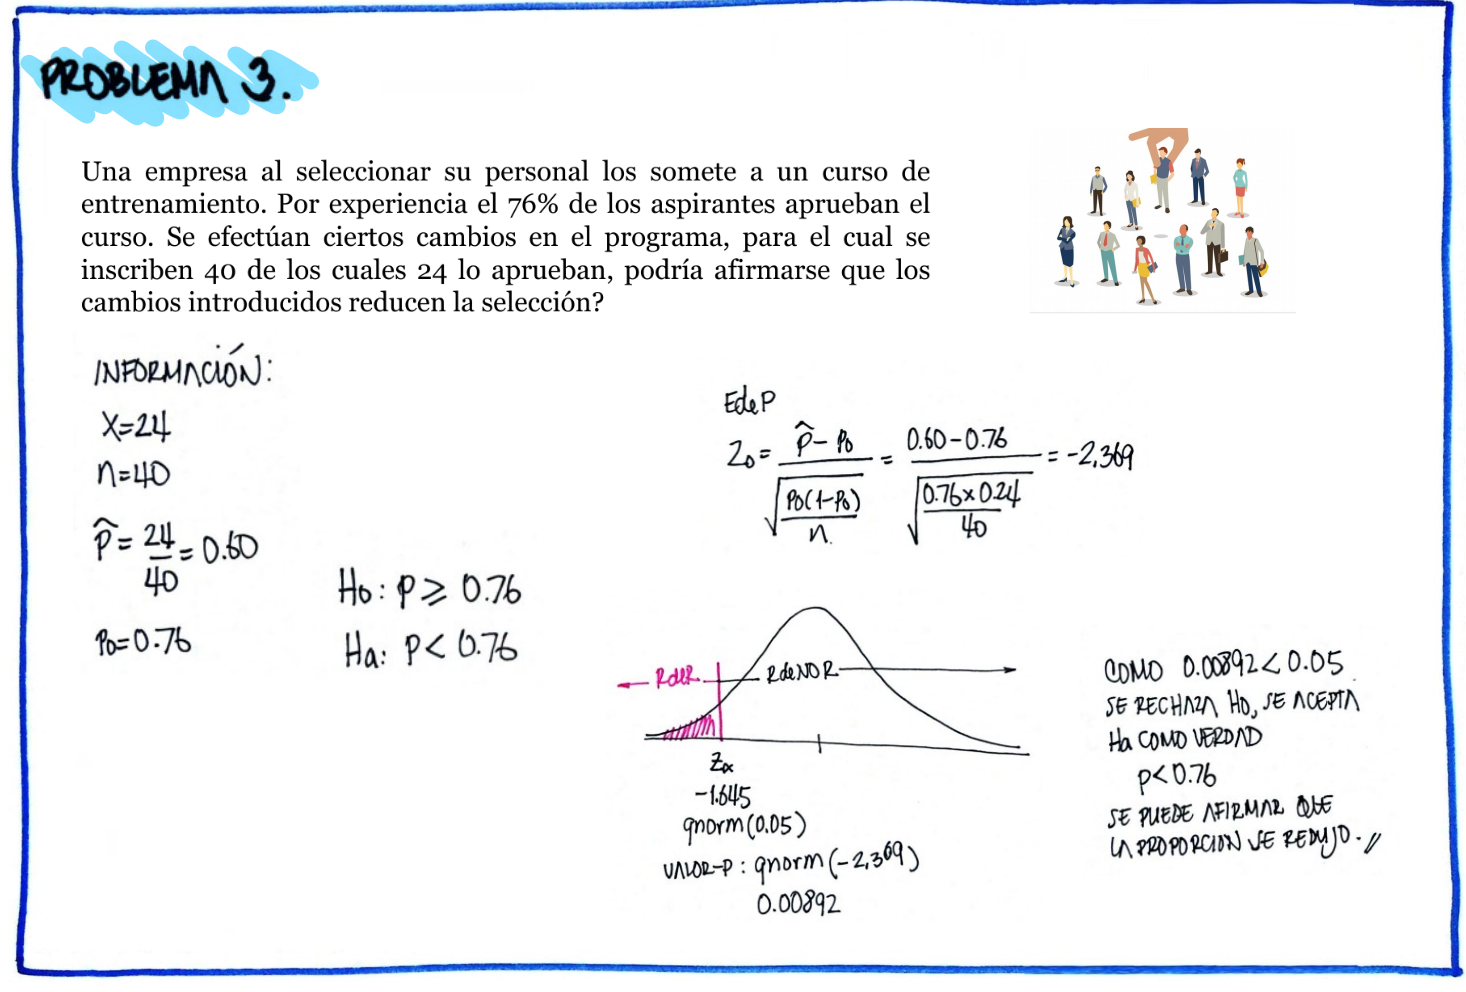 PROBLEMA 3.
Una empresa al seleccionar su personal los somete a un curso de
entrenamiento. Por experiencia el 76% de los aspirantes aprueban el
curso. Se efectúan ciertos cambios en el programa, para el cual se
inscriben 40 de los cuales 24 lo aprueban, podría afirmarse que los
cambios introducidos reducen la selección?
INFORMACIÓN:
X=24
n=40
p̂ = 24/40 = 0.60
P0=0.76
Ho: p ⩾ 0.76
Ha: p < 0.76
EdeP
Z0 = (p̂ - p0) / √(p0(1-p0)/n) = (0.60-0.76) / √(0.76×0.24/40) = -2,369
RdeR RdeNOR
Zα
-1.645
qnorm(0.05)
VALOR-P: qnorm(-2,369)
0.00892
COMO 0.00892 < 0.05
SE RECHAZA Ho, SE ACEPTA
Ha COMO VERDAD
p<0.76
SE PUEDE AFIRMAR QUE
LA PROPORCION SE REDUJO.//